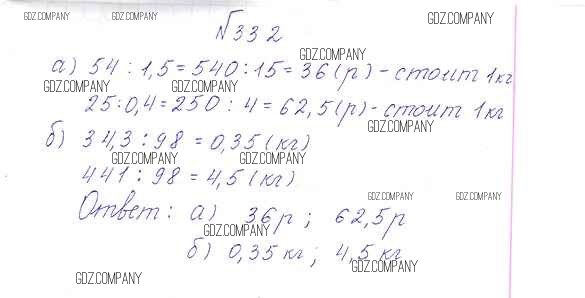 GDZ.COMPANY GDZ.COMPANY GDZ.COMPANY
№332
GDZ.COMPANY
а) 54 : 1,5 = 540 : 15 = 36 (р) - стоит 1 кг
GDZ.COMPANY GDZ.COMPANY
25 : 0,4 = 250 : 4 = 62,5 (р) - стоит 1 кг
GDZ.COMPANY
б) 34,3 : 98 = 0,35 (кг)
GDZ.COMPANY GDZ.COMPANY
441 : 98 = 4,5 (кг)
GDZ.COMPANY GDZ.COMPANY
Ответ: а) 36 р ; 62,5 р
GDZ.COMPANY
б) 0,35 кг ; 4,5 кг
GDZ.COMPANY
GDZ.COMPANY